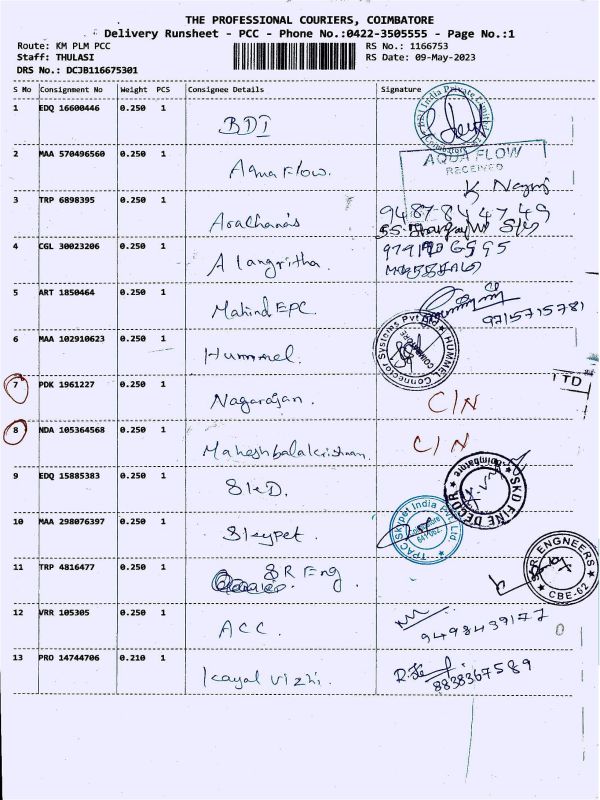 THE PROFESSIONAL COURIERS, COIMBATORE
Delivery Runsheet - PCC - Phone No.:0422-3505555 - Page No.:1
Route: KM PLM PCC
Staff: THULASI
DRS No.: DCJB116675301
RS No.: 1166753
RS Date: 09-May-2023
S No Consignment No Weight PCS Consignee Details Signature
1 EDQ 16600446 0.250 1 BDI
2 MAA 570496560 0.250 1 Aqua Flow.
AQUA FLOW
RECEIVED
3 TRP 6898395 0.250 1 Aradhana's
4 CGL 30023206 0.250 1 Alangritha.
5 ART 1850464 0.250 1 Mahind EPC. 9715715781
6 MAA 102910623 0.250 1 Hummel.
HUMMEL Connector Systems Pvt Ltd
COIMBATORE
7 PDK 1961227 0.250 1 Nagarajan. C/N
LTD
8 NDA 105364568 0.250 1 Maheshbalakrishnan. C/N
9 EDQ 15885383 0.250 1 SKD.
SKD FINE DECOR
Coimbatore
10 MAA 298076397 0.250 1 Skypet.
TPAC Skypet India Pvt Ltd.
11 TRP 4816477 0.250 1 SR Eng
SR ENGNEERS
CBE-62
12 VRR 105305 0.250 1 ACC. 9498439177
13 PRO 14744706 0.210 1 Kayal vizhi. 8838367589